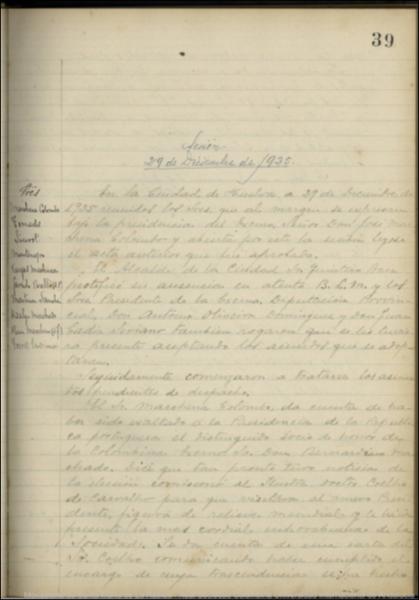 39
Sesión
29 de Diciembre de 1925.
Sres
Marchena Colombo
En la Ciudad de Huelva a 29 de Diciembre de
1925 reunidos los Sres que al margen se expresan
bajo la presidencia del Excmo Señor Don José Mar
chena Colombo y abierta por este la sesión leyose
el acta anterior que fue aprobada.
El Alcalde de la Ciudad Sr Quintero Baez
su ausencia en atento B. L. M. y los
Sres Presidente de la Excma. Diputación Provin
cial, Don Antonio Oliveira Dominguez y Don Juan
Cadiz Soriano tambien rogaron que se les tuvie
ra presente aceptando los acuerdos que se adop
taran.
Seguidamente comenzaron a tratarse los asun
tos pendientes de despacho.
El Sr. Marchena Colombo, da cuenta de ha
ber sido exaltado a la Presidencia de la Repúbli
ca portuguesa el distinguido Socio de honor de
la Colombina Excmo Sr. Don Bernardino Ma
chado. Dice que tan pronto tuvo noticias de
la elección comisionó al Ilustre doctor Coelho
de Carvalho para que visitara al nuevo Presi
dente, figura de relieve mundial y le hiciera
presente la mas cordial enhorabuena de la
Sociedad. Se da cuenta de una carta del
Sr. Coelho comunicando haber cumplido el
encargo de cuya trascendencia se ha